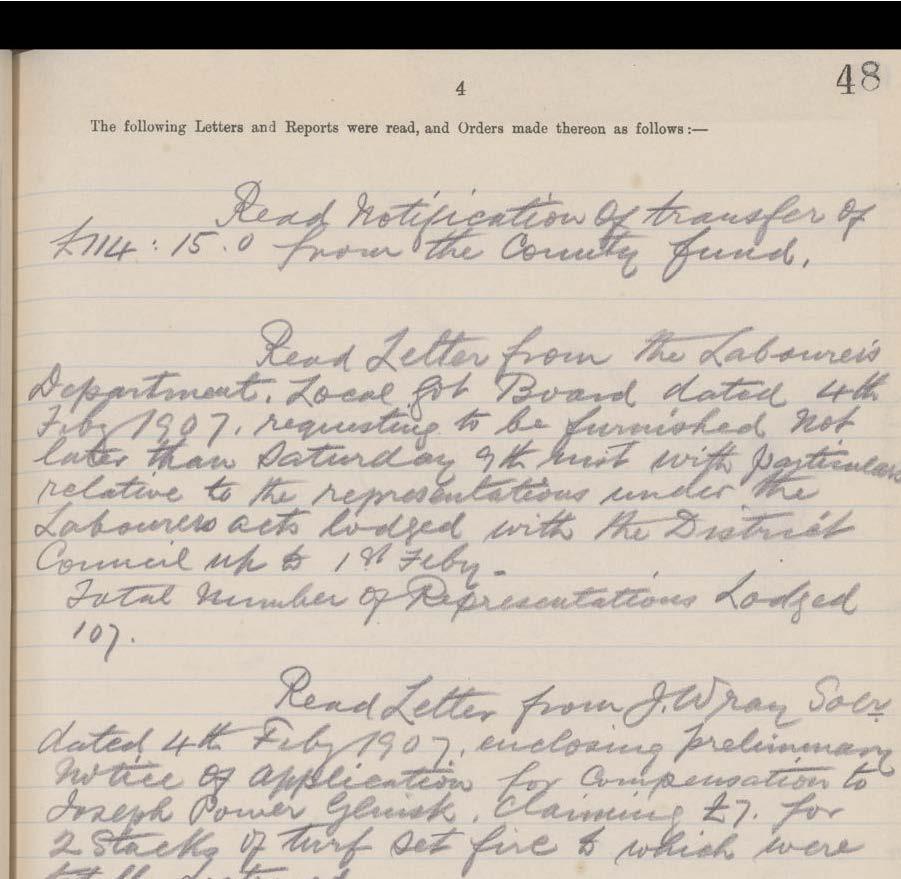 4
48
The following Letters and Reports were read, and Orders made thereon as follows :—
Read Notification Of transfer of
£114 : 15 . 0 from the County fund.
Read Letter from the Labourers
Department. Local Govt Board dated 4th
Feby 1907. requesting to be furnished not
later than Saturday 9th inst with particulars
relative to the representations under the
Labourers acts lodged with the District
Council up to 1st Feby.
Total Number of Representations Lodged
107.
Read Letter from J. Wray Solr
dated 4th Feby 1907. enclosing preliminary
Notice Of Application for Compensation to
Joseph Power Glinsk. Claiming £7. for
2 Stacks of turf set fire to which were